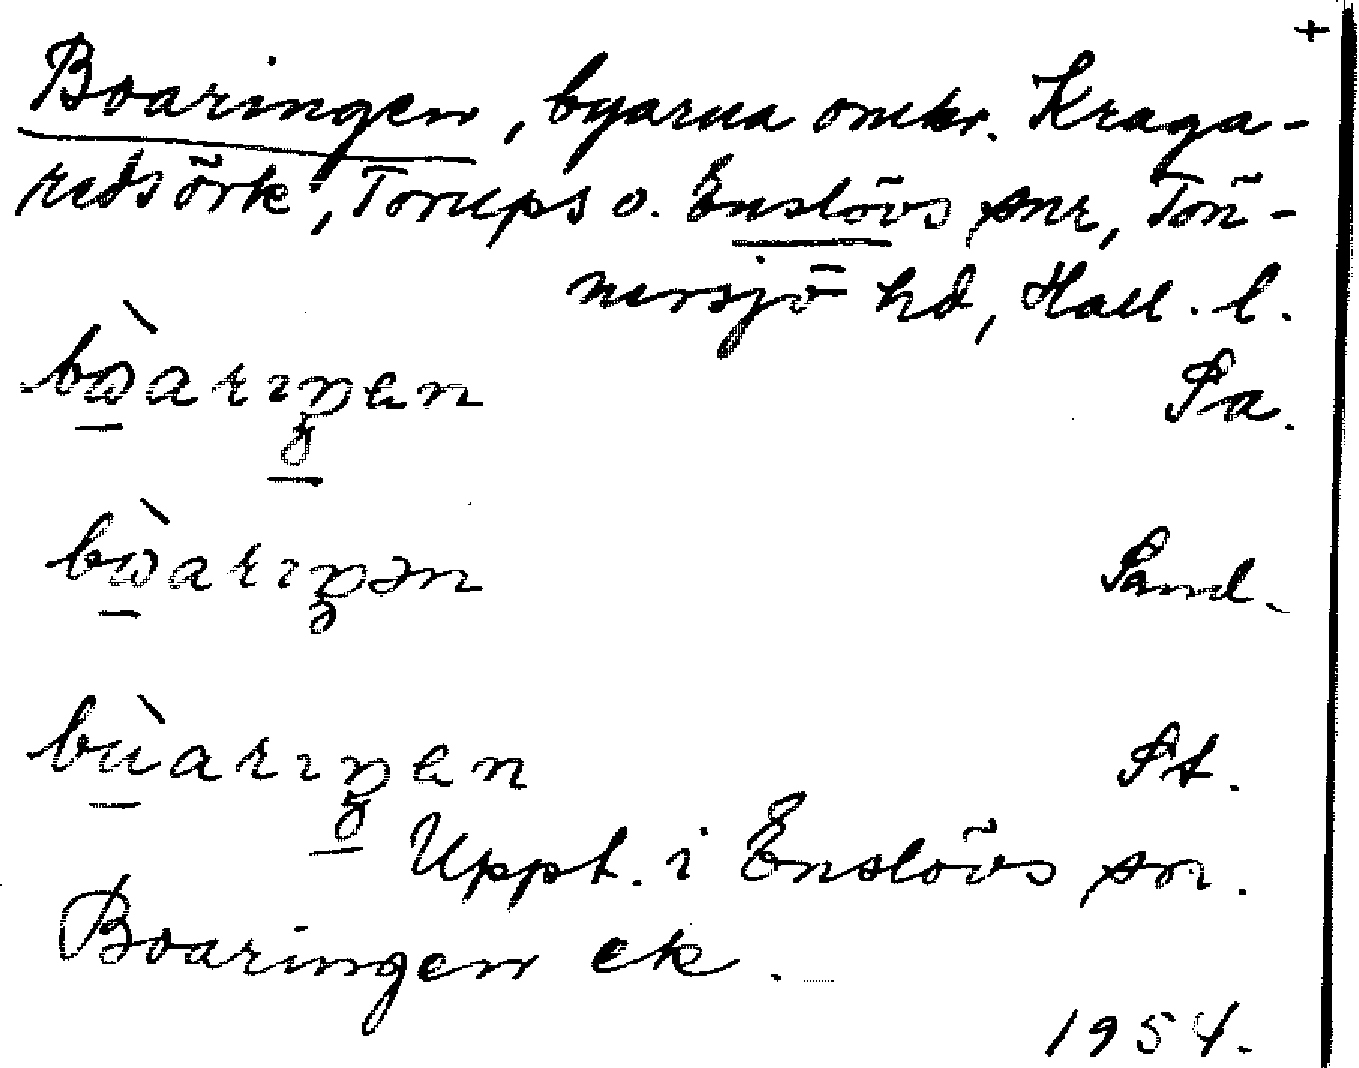 +
Boaringen, byarna omkr. Kraga-
redsörk, Torups o. Enslövs snr, Tön-
nersjö hd, Hall. l.
Pa.
Sand.
St.
Uppt. i Enslövs sn.
Boaringen ek.
1954.